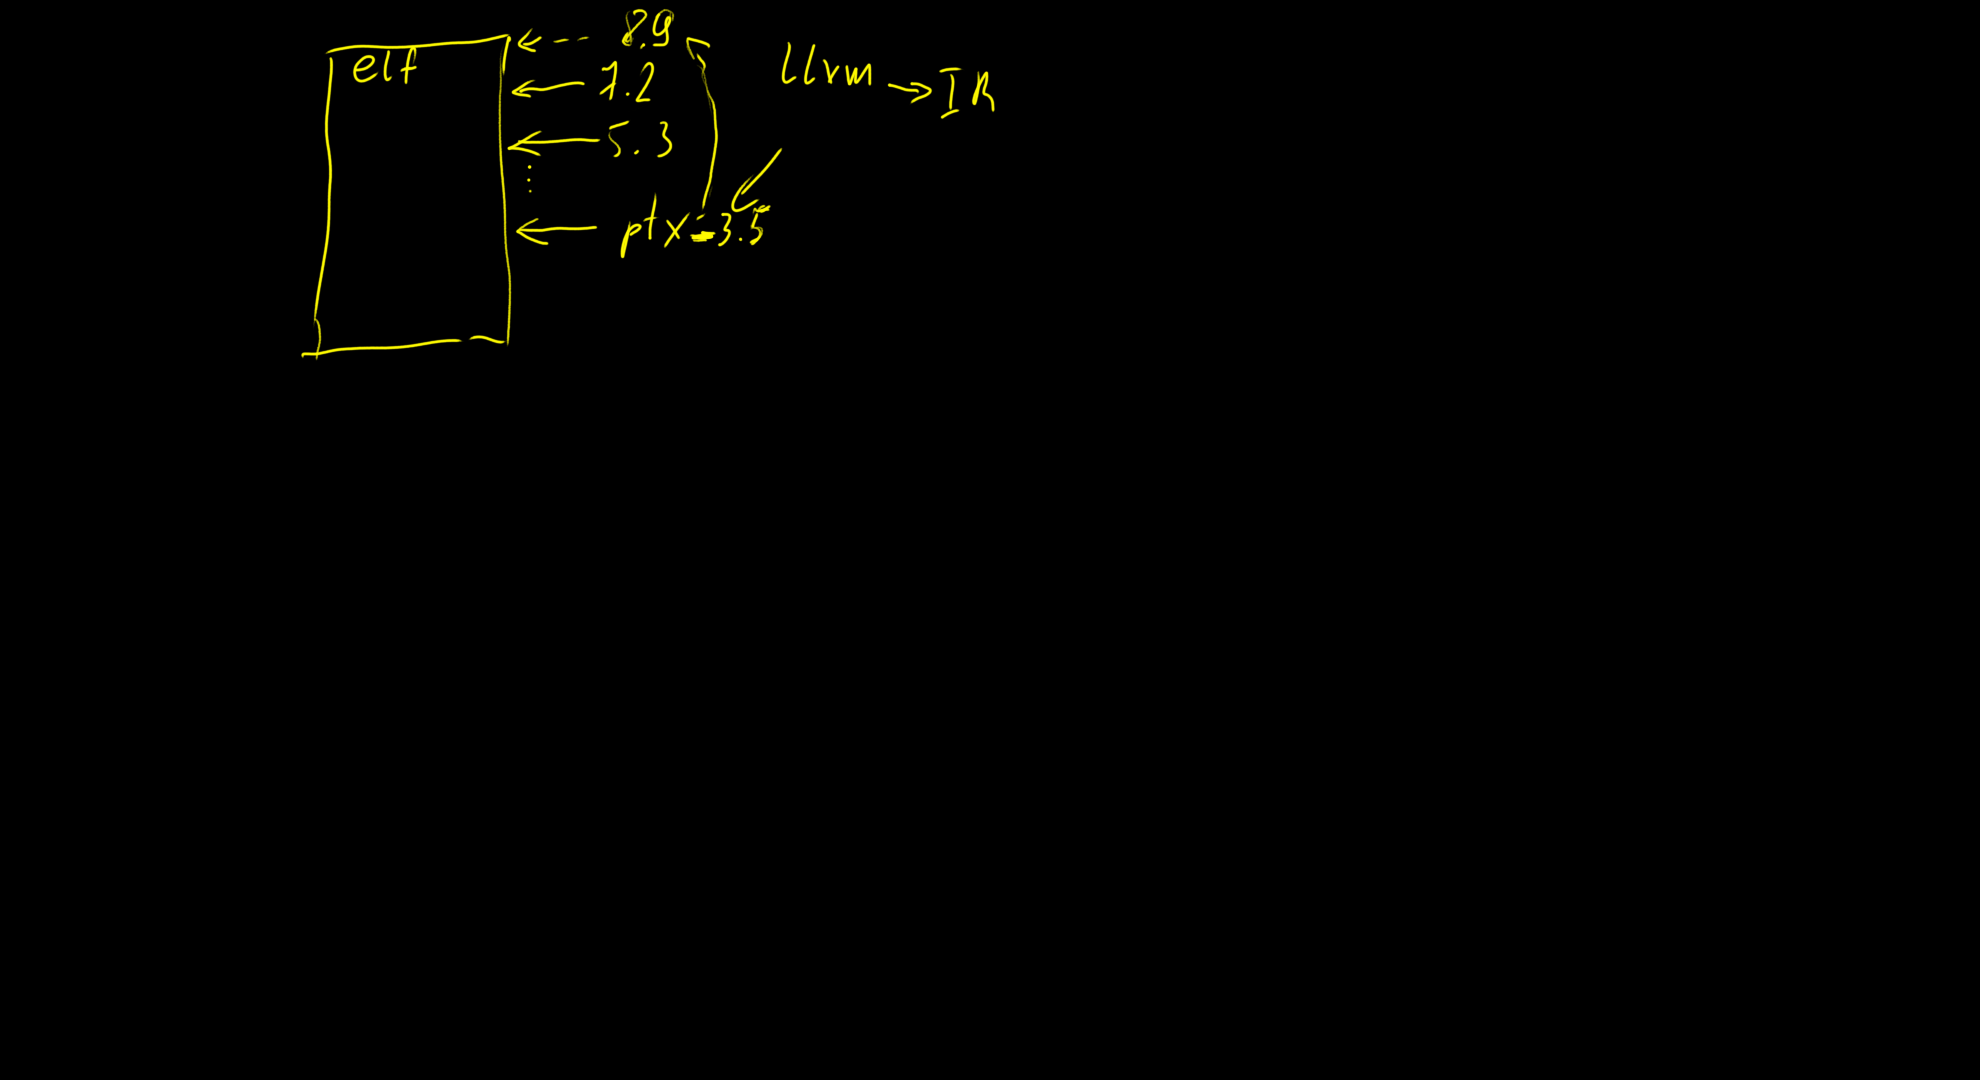 elf
8.9
7.2
5.3
ptx-3.5
llvm → IR